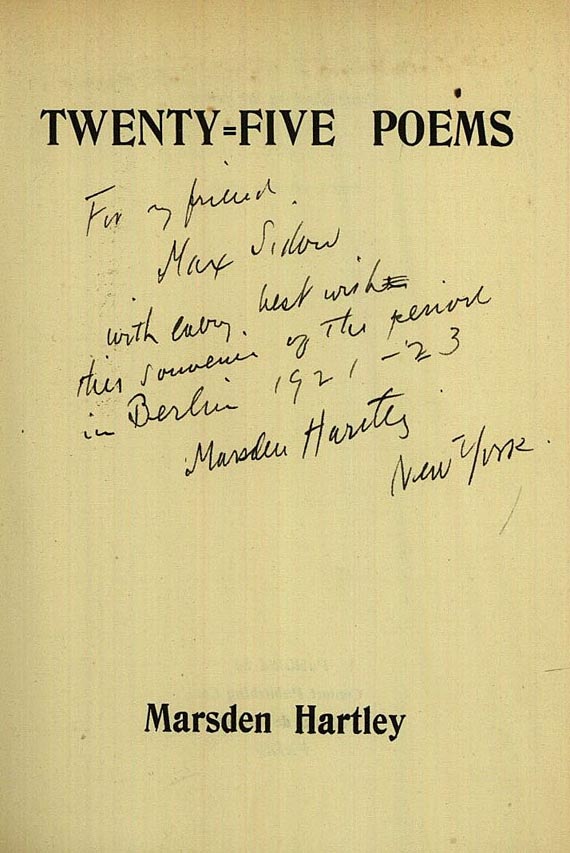 TWENTY=FIVE POEMS
For my friend
Max Sidow
with every best wish
this souvenir of the period
in Berlin 1921-'23
Marsden Hartley
New York.
Marsden Hartley